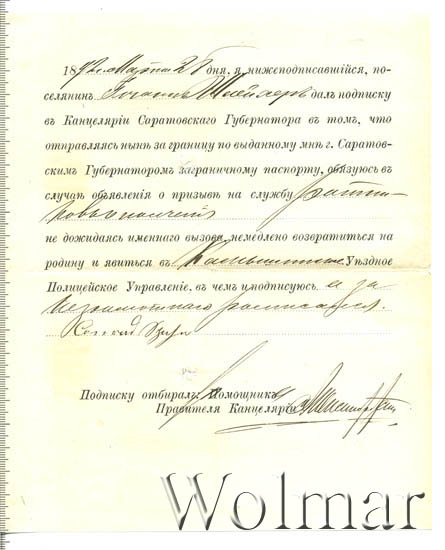 1892 г. Марта 28 дня, я, нижеподписавшійся, по-
селянинъ далъ подписку
въ Канцеляріи Саратовскаго Губернатора въ томъ, что
отправляясь нынѣ за границу по выданному мнѣ г. Саратов-
скимъ Губернаторомъ заграничному паспорту, обязуюсь въ
случаѣ объявленія о призывѣ на службу ратни-
ковъ
не дожидаясь именнаго вызова, немедлено возвратиться на
родину и явиться въ Камышинское Уѣздное
Полицейское Управленіе, въ чемъ и подписуюсь а за
неграмотнаго росписался
Conrad
Подписку отбиралъ: Помощникъ
Правителя Канцеляріи
Wolmar